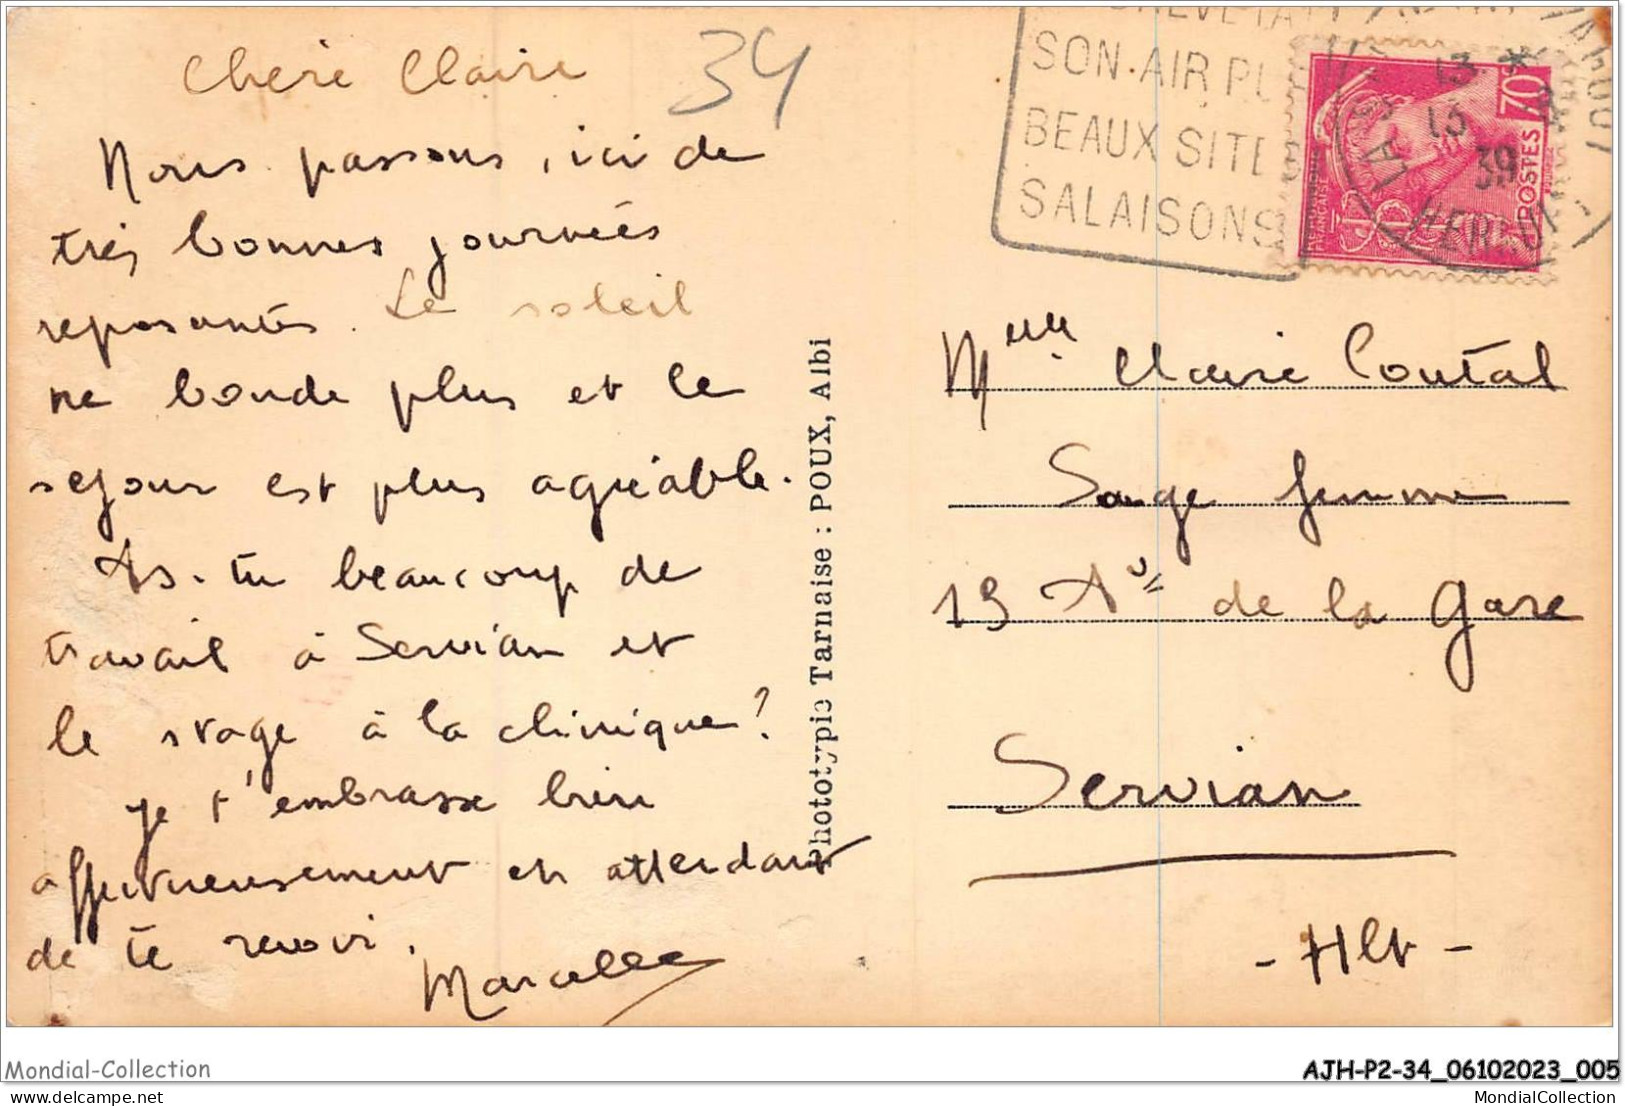 Chère Claire
34
Nous passons, ici de
très bonnes journées
reposantes. Le soleil
ne boude plus et le
sejour est plus agréable.
As-tu beaucoup de
travail à Servian et
le stage à la clinique?
je t'embrasse bien
affectueusement en attendant
de te revoir.
Marcelle
Phototypie Tarnaise : POUX, Albi
SON AIR PU
BEAUX SITE
SALAISONS
13 *
13
39
70c
POSTES
Melle Claire Coutal
Sage femme
13 Ave de la Gare
Servian
- Hlt -
Mondial-Collection
AJH-P2-34_06102023_005
MondialCollection